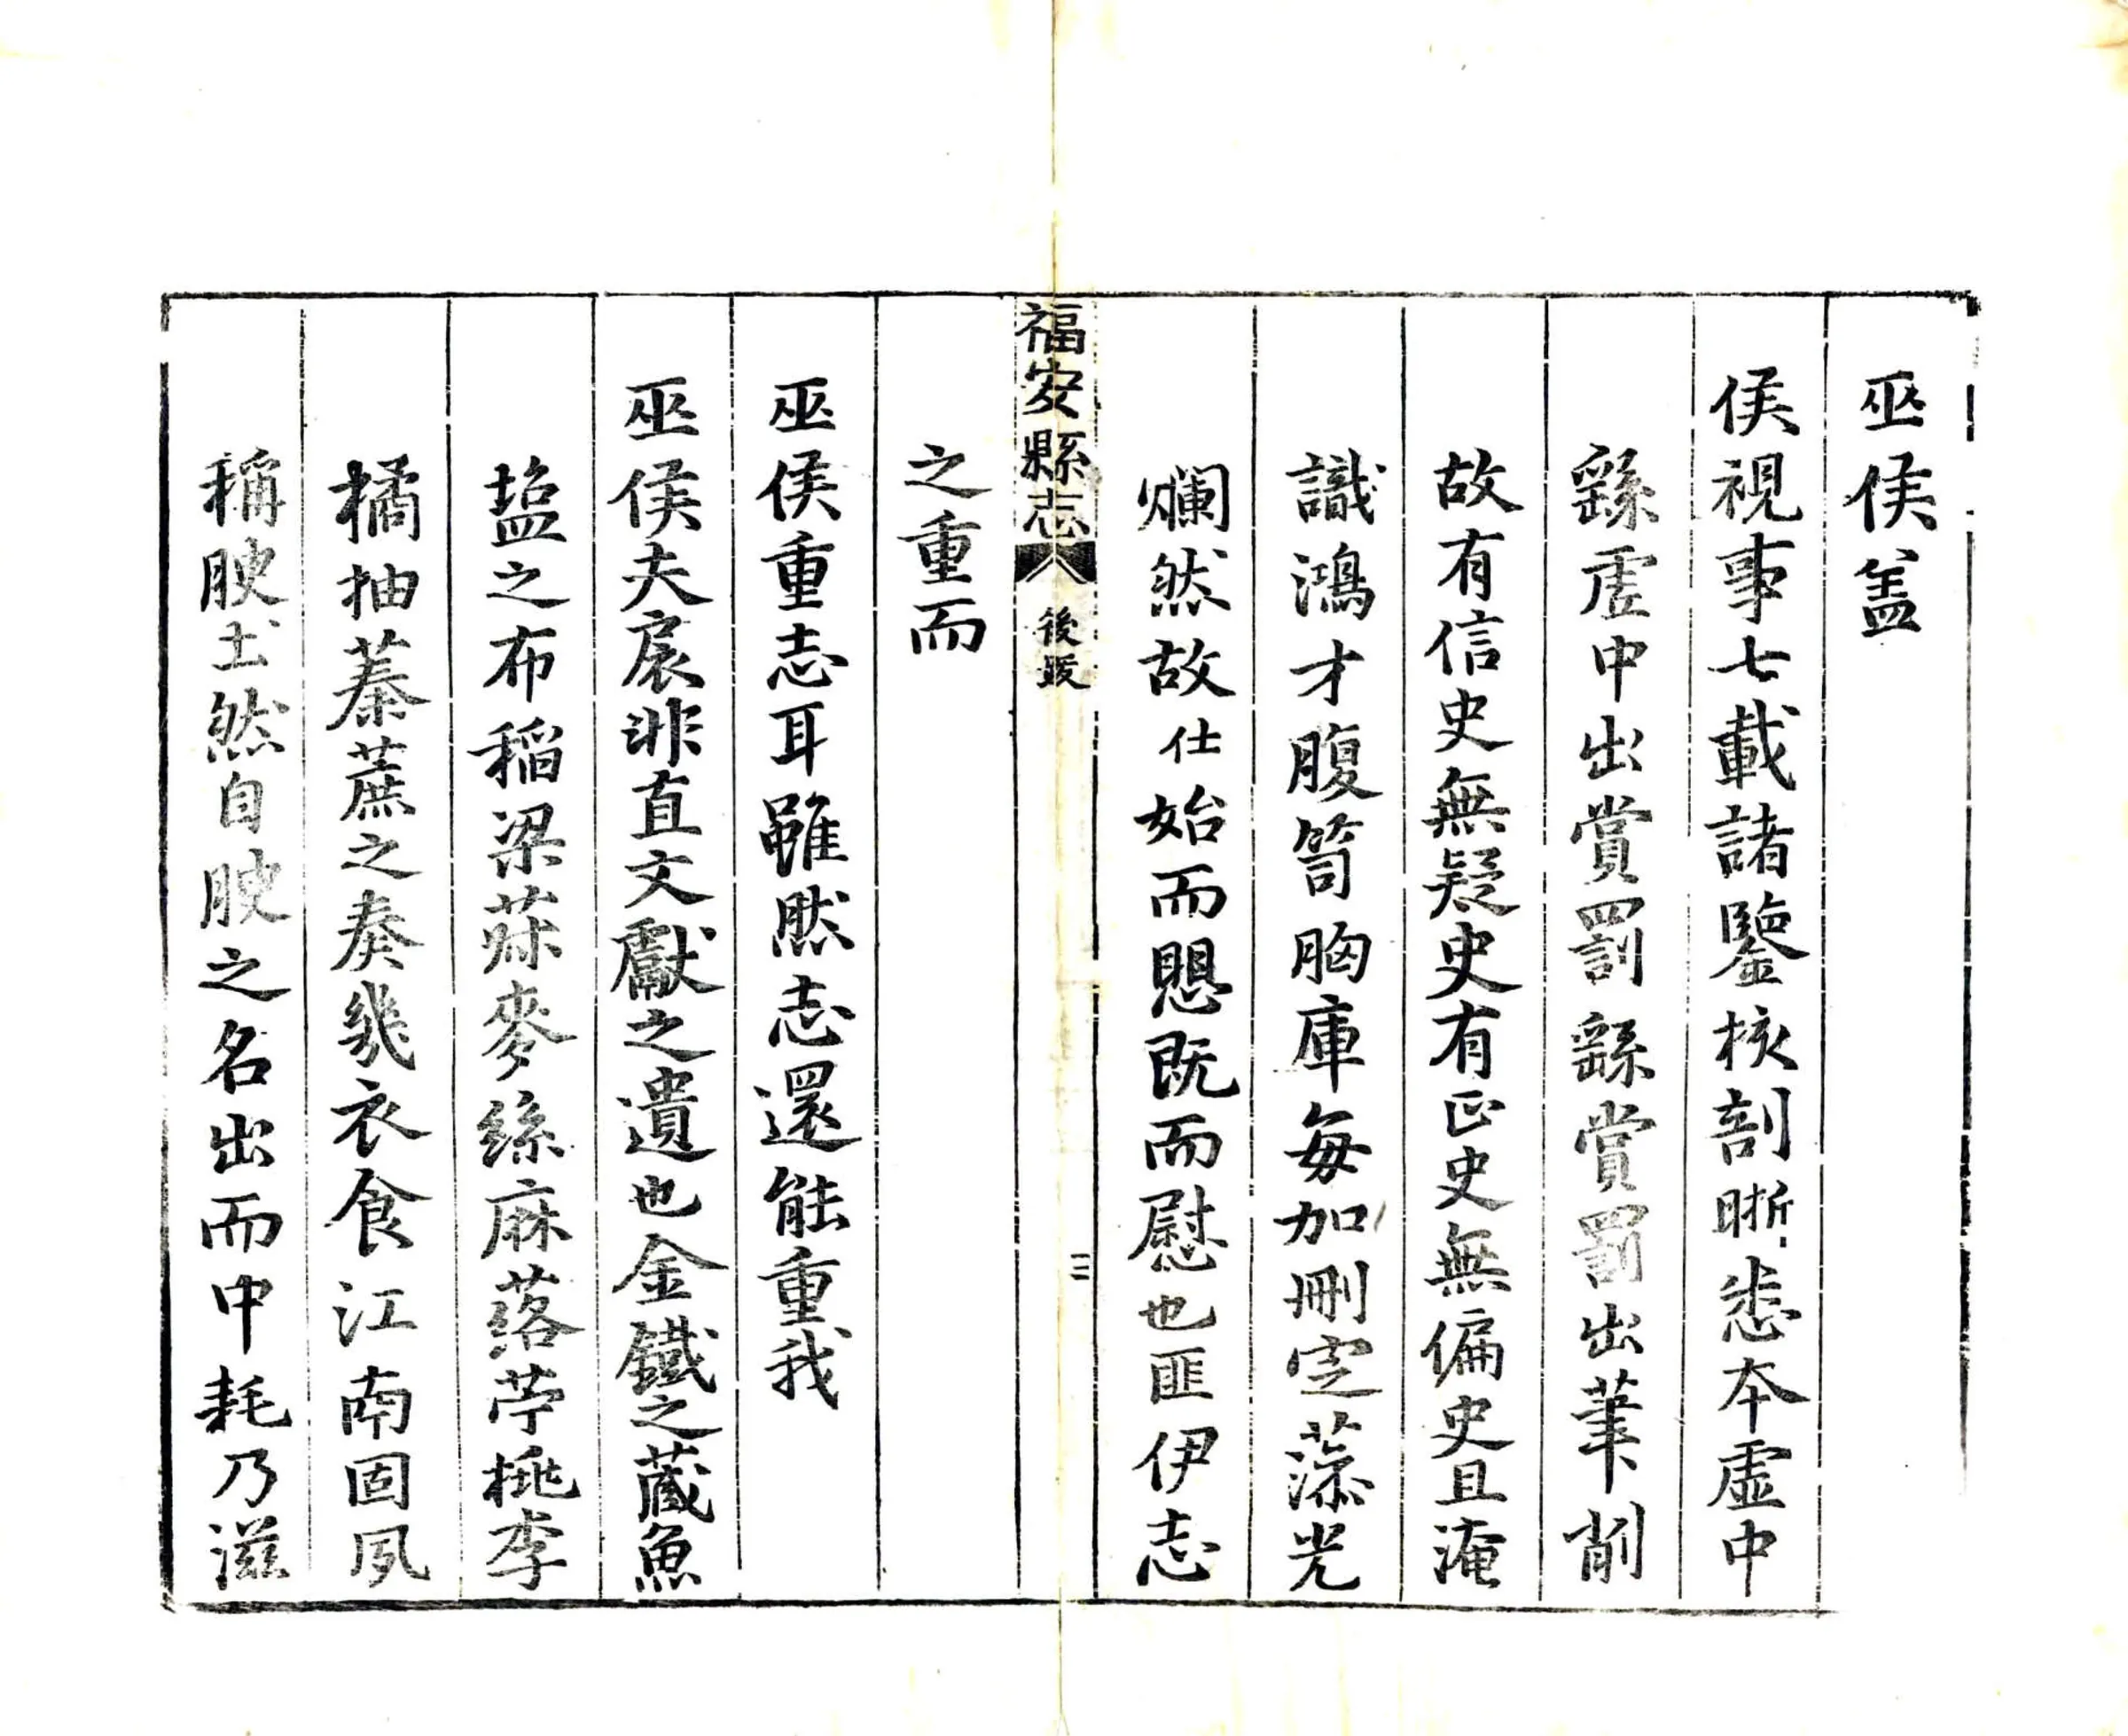 巫侯盖
侯視事七載諸鑒核剖晰悉本虛中
繇虛中出賞罰繇賞罰出筆削
故有信史無疑史有正史無偏史且淹
識鴻才腹笥胸庫每加刪定藻光
爛然故仕始而愳既而慰也匪伊志
福安縣志
後跋
三
之重而
巫侯重志耳雖然志還能重我
巫侯夫扆非直文獻之遺也金鐵之藏魚
塩之布稻梁菽麥絲麻落苧桃李
橘抽蓁蔗之奏幾衣食江南固夙
稱腴土然自腴之名出而中耗乃滋